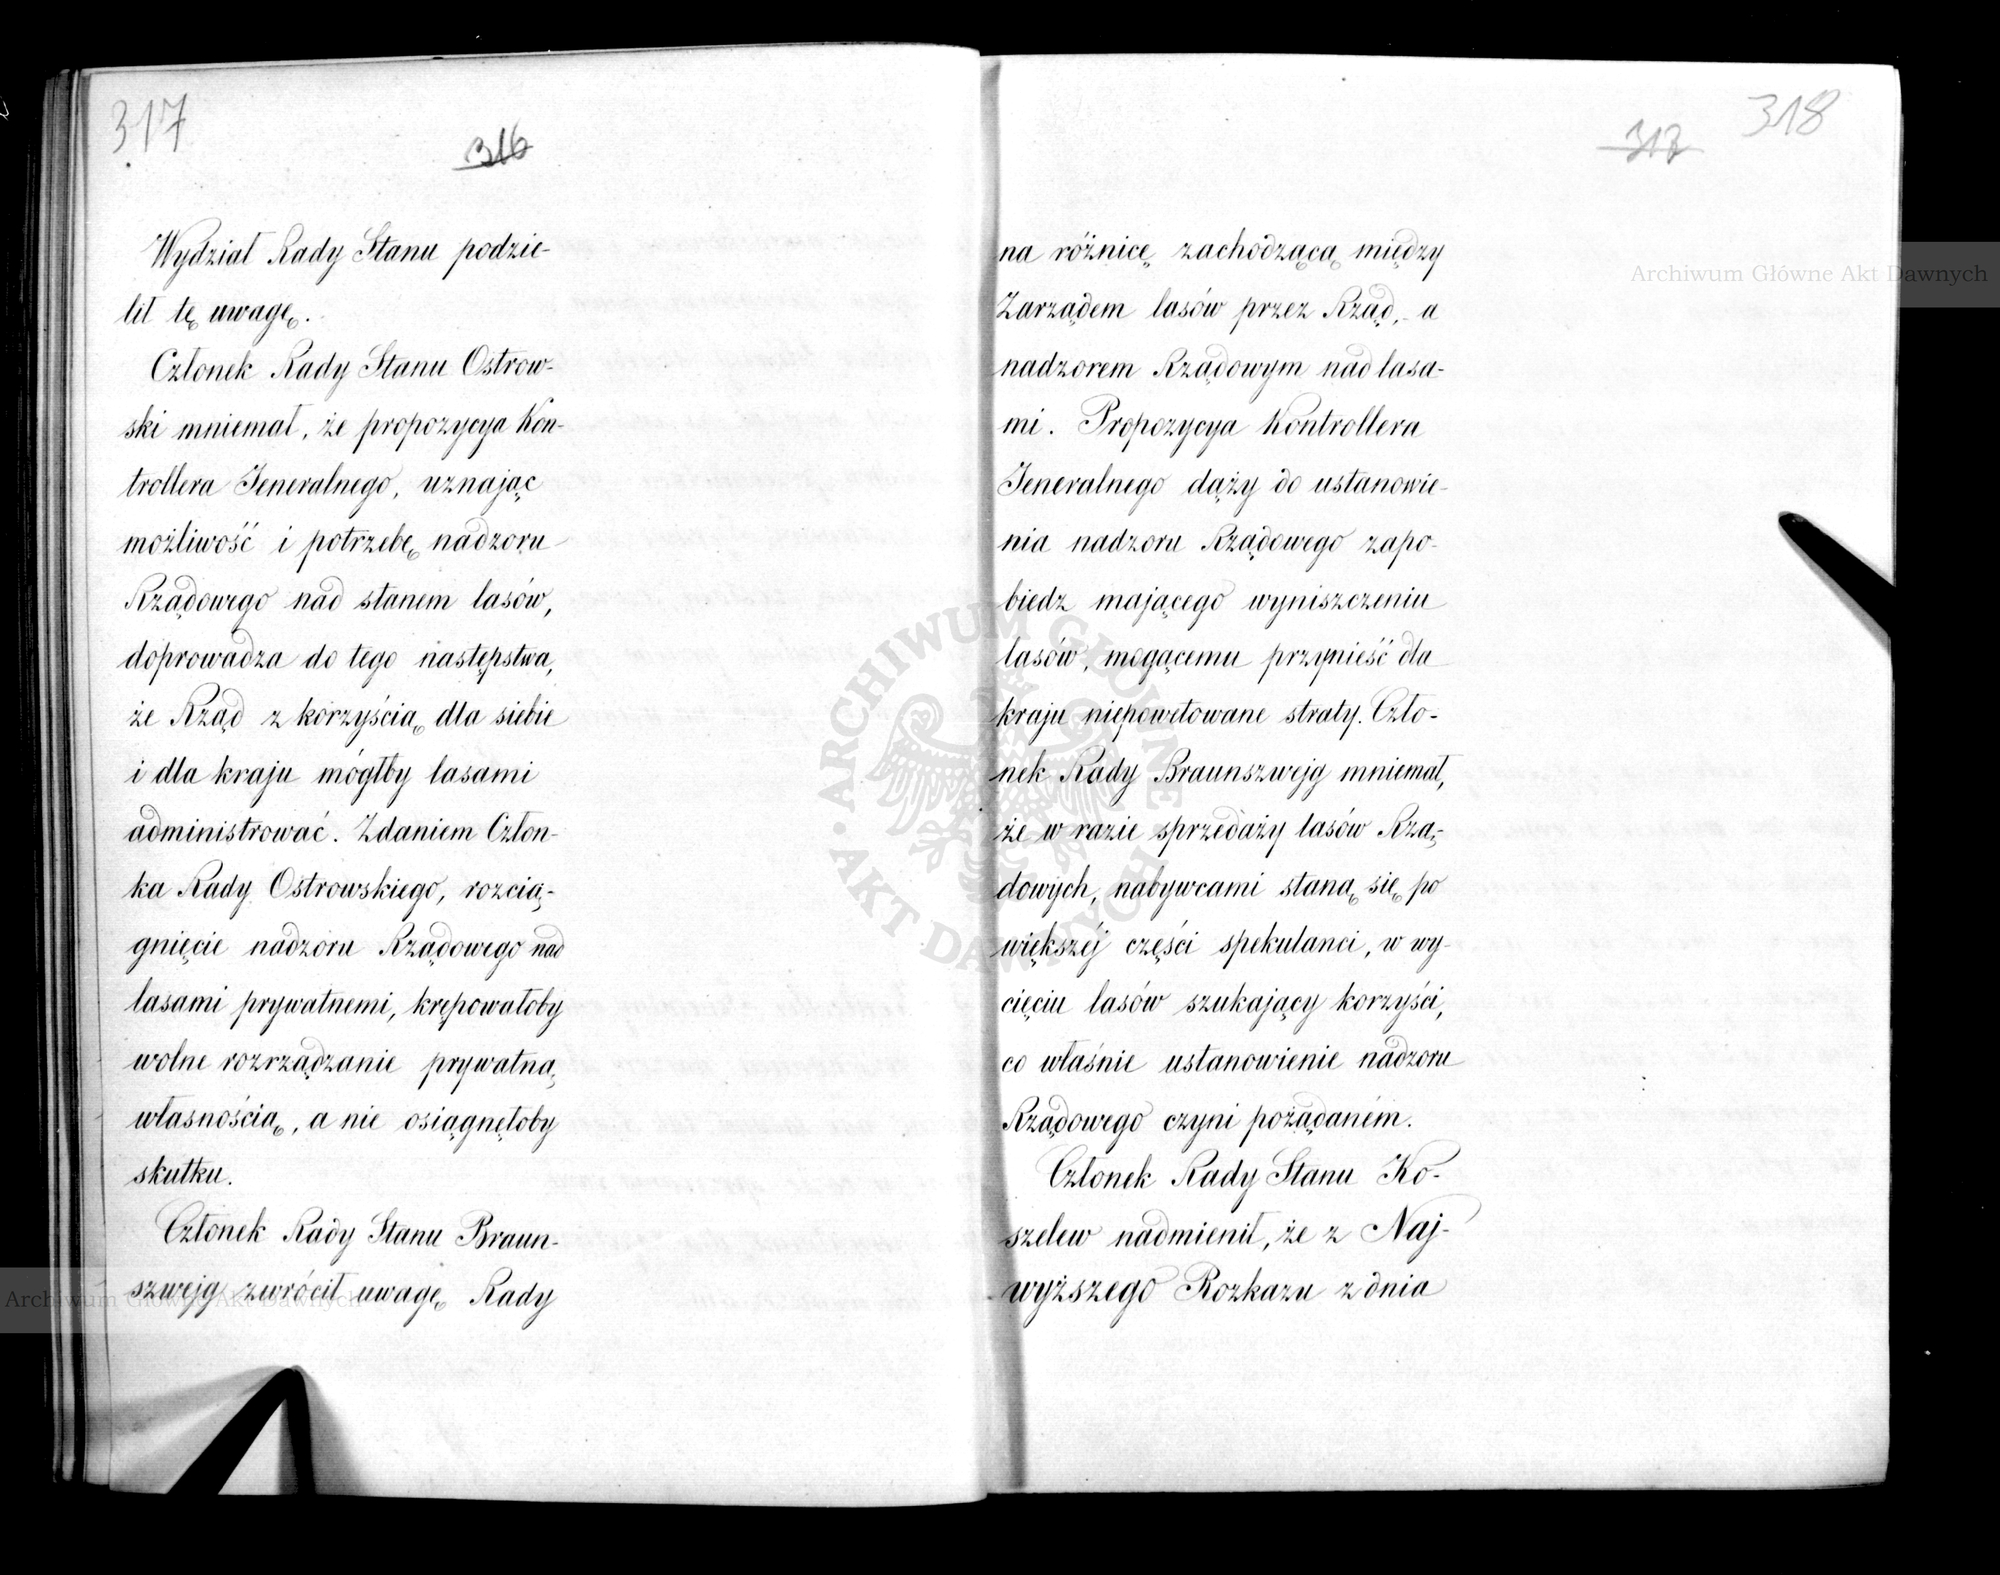 317
316
Wydział Rady Stanu podzie-
lił tę uwagę.
Członek Rady Stanu Ostrow-
ski mniemał, że propozycya Kon-
trollera Jeneralnego, uznając
możliwość i potrzebę nadzoru
Rządowego nad stanem lasów,
doprowadza do tego następstwa,
że Rząd z korzyścią dla siebie
i dla kraju mógłby lasami
administrować. Zdaniem Człon-
ka Rady Ostrowskiego, rozcią-
gnięcie nadzoru Rządowego nad
lasami prywatnemi, krępowałoby
wolne rozrządzanie prywatną
własnością, a nie osiągnęłoby
skutku.
Członek Rady Stanu Braun-
szwejg zwrócił uwagę Rady
318
na różnicę zachodzącą między
Zarządem lasów przez Rząd, a
nadzorem Rządowym nad lasa-
mi. Propozycya Kontrollera
Jeneralnego dąży do ustanowie-
nia nadzoru Rządowego zapo-
biedz mającego wyniszczeniu
lasów, mogącemu przynieść dla
kraju niepowetowane straty. Czło-
nek Rady Braunszwejg mniemał,
że w razie sprzedaży lasów Rzą-
dowych, nabywcami staną się po
większéj części spekulanci, w wy-
cięciu lasów szukający korzyści,
co właśnie ustanowienie nadzoru
Rządowego czyni pożądaném.
Członek Rady Stanu Ko-
szelew nadmienił, że z Naj-
wyższego Rozkazu z dnia
Archiwum Główne Akt Dawnych
Archiwum Główne Akt Dawnych
ARCHIWUM GŁÓWNE AKT DAWNYCH